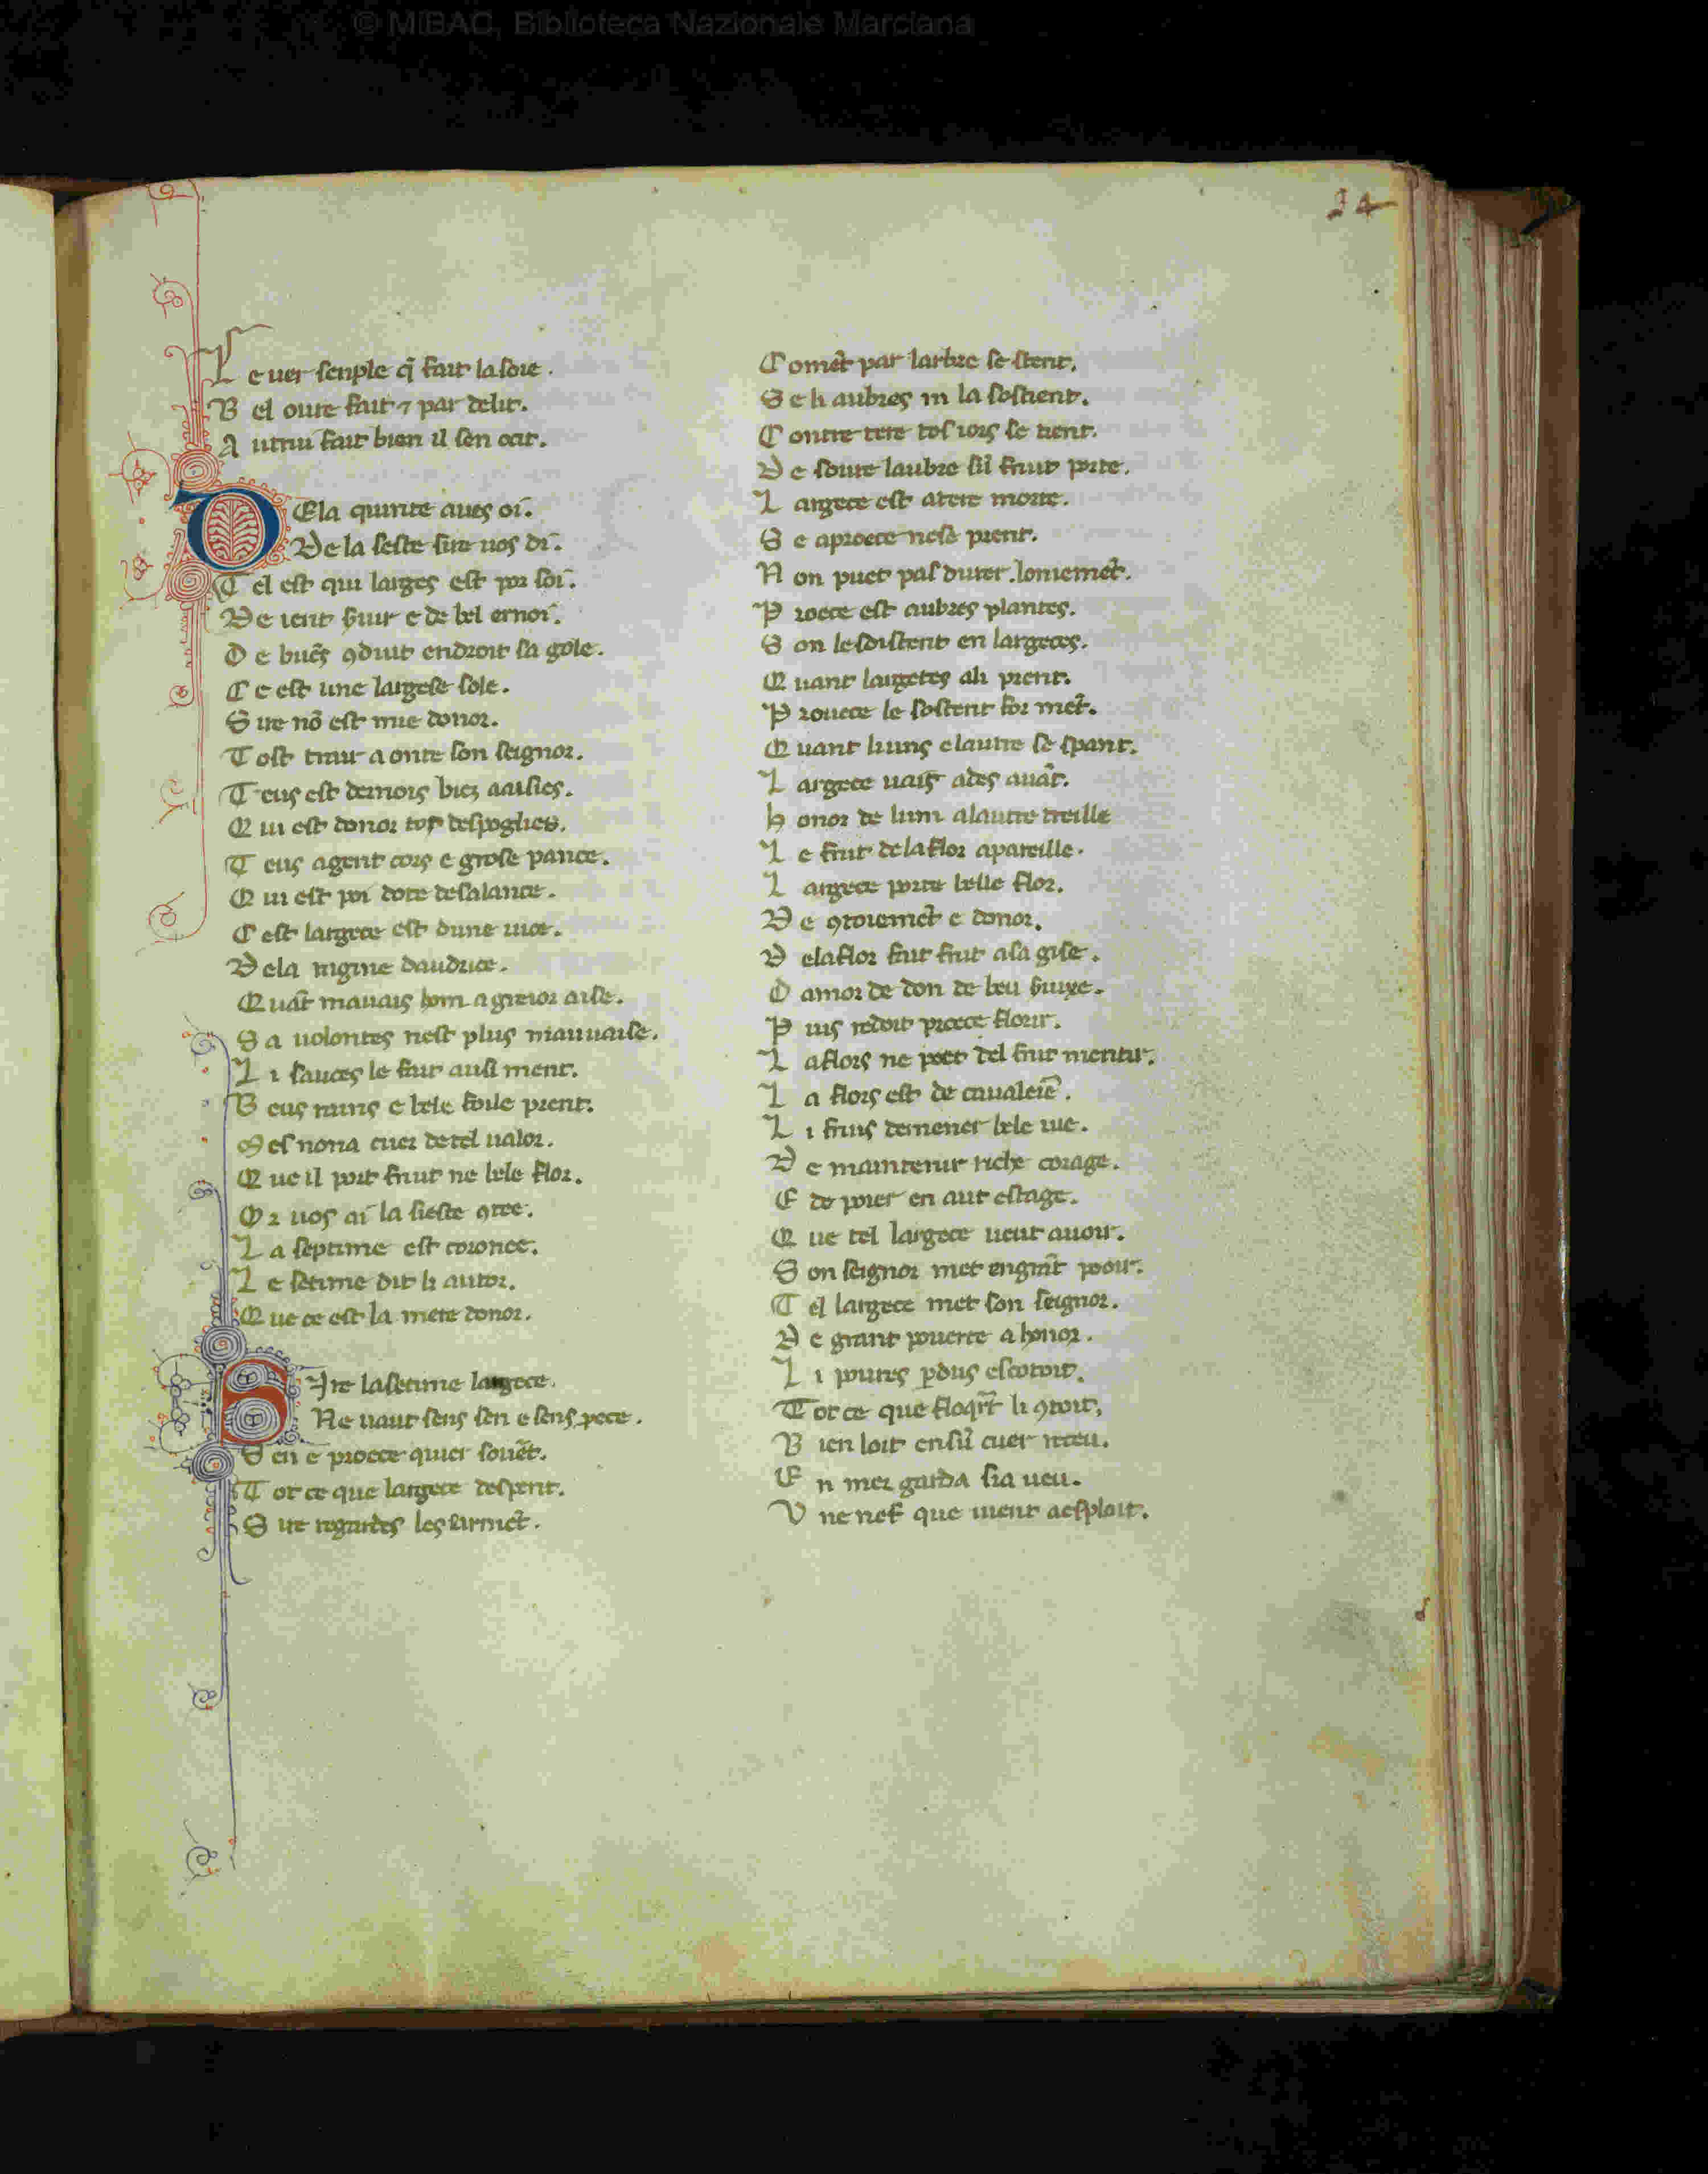 © MiBAC, Biblioteca Nazionale Marciana
34
L e uer senple q̃ fait la soie.
B el oure fait ⁊ par delit.
A utrui fait bien il sen ocit.
D Ela quinte aues oi.
De la seste sire uos di.
T el est qui larges est por soi.
De ient ẜuir e de bel ernoi.
D e buẽs ꝯduit endroit sa gole.
C e est une largese sole.
S ire nõ est mie donor.
T ost trait a onte son seignor.
T eus est demois biẽ aaisies.
Q ui est donor tot despoglies.
T eus agent cors e grose pance.
Q ui est poi dote desa lance.
C est largece est dune uice.
De la raigine dauarice.
Q uãt mauais hom a greior aise.
S a uolontes nest plus mauuaise.
L i sauces le fait ausi ment.
B eus rains e bele foile prent.
M es nona cuer de tel ualor.
Q ue il port fruit ne bele flor.
O r uos ai la sieste ꝯtee.
L a septime est coronee.
L e setime dit li autor.
Q ue ce est la mere donor.
S Ire la setime largece.
Ne uaut sens sen e sens pece.
S en e proece quier souẽt.
T ot ce que largece despent.
S ire regardes les
C omẽt par larbre se stent.
S e li aubres m la sostient.
C ontre tere tos iors se tient.
D e soure laubre sil fruit porte.
L argece est a tere morte.
S e a proece ne se prent.
N on puet pas durer. loniemẽt.
P roece est aubres plantes.
S on le soistent en largeces.
Q uant largetes ali prent.
P rouece le sostent formẽt.
Q uant liuns e lautre se spant.
L argece uait ades auãt.
h onor de luni alautre treille
L e fruit de la flor apareille.
L argece porte belle flor.
D e ꝯtoiemẽt e donor.
D ela flor fait fruit a sa gise.
D amor de don de beu ẜuixe.
P uis redoit proece florir.
L a flors ne poet del fruit mentir.
L a flors est de caualeiẽ.
L i fruis demener bele uie.
D e maintenir riche corage.
E de poier en aut estage.
Q ue tel largece ueut auoir.
S on seignor met en grãt pooir.
T el largece met son seignor.
D e grant pouerte a honor.
L i poures ꝑdus escotoit.
T ot ce que floq̃rt li ꝯtoit,
B ien loit en sũ cuer receu.
E n mer garda sia ueu.
U ne nef que uient a esploit.